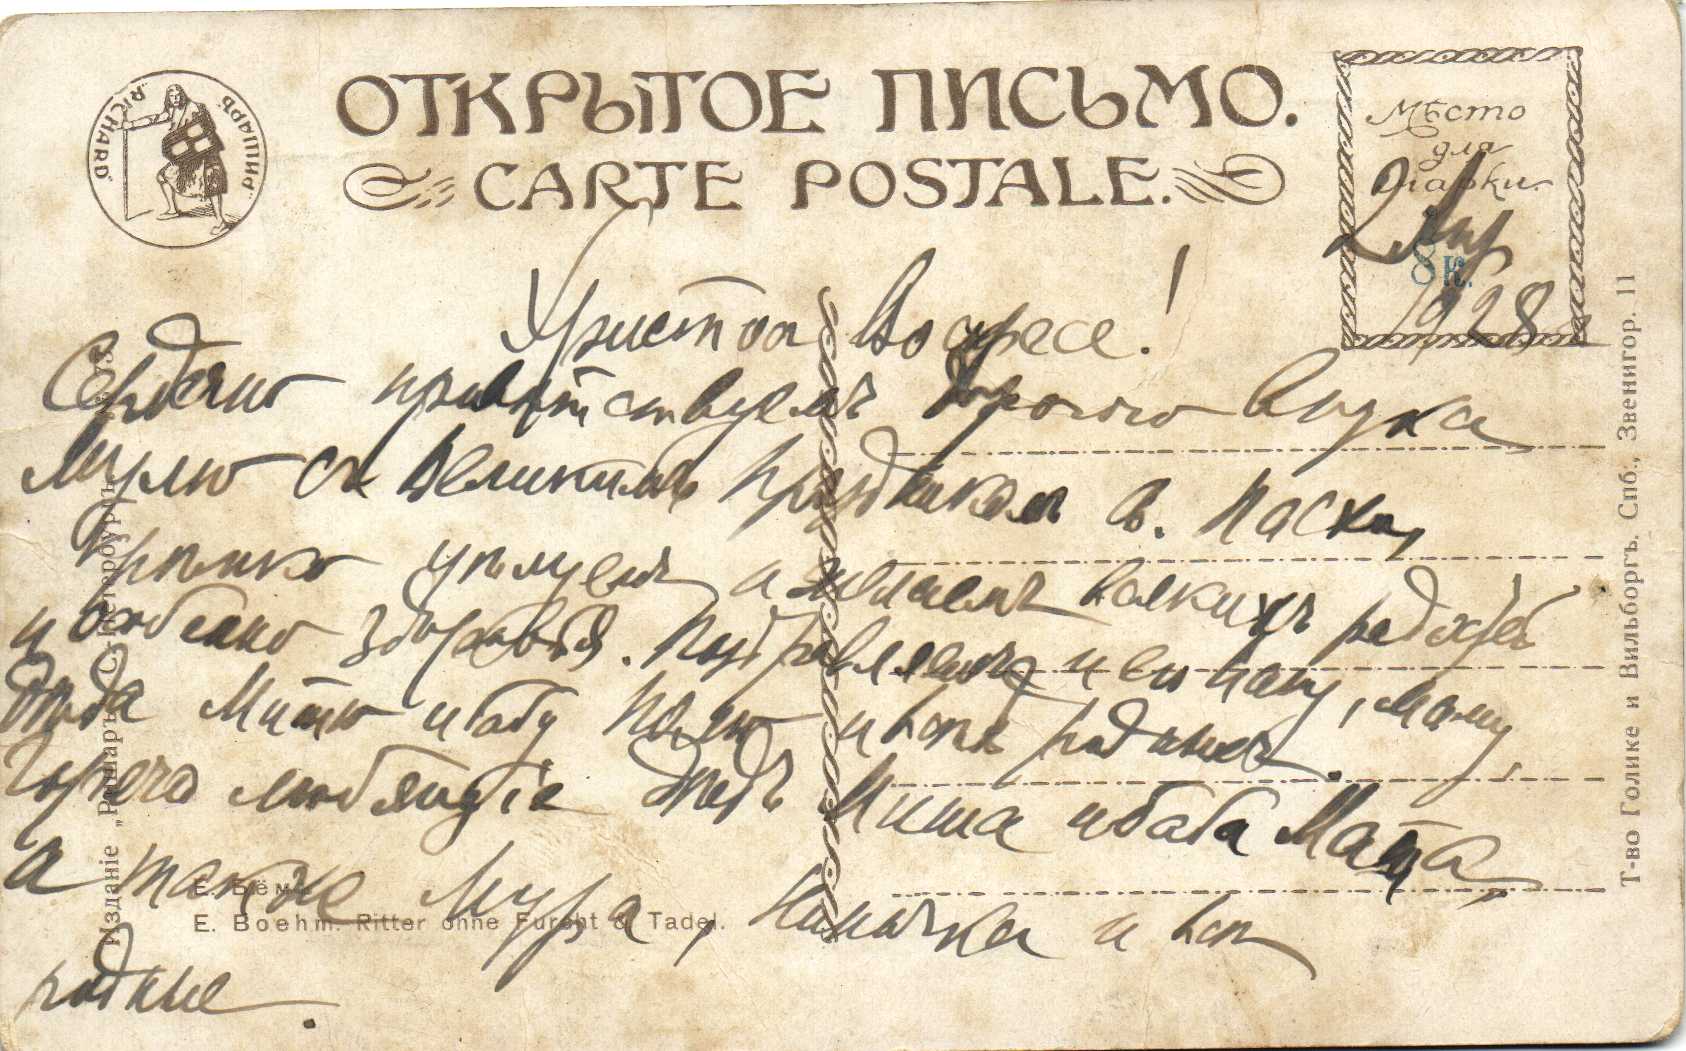 ОТКРЫТОЕ ПИСЬМО.
CARTE POSTALE.
„RICHARD“ „РИШАРЪ“
Мѣсто
для
марки.
2 Апр
8 к.
1928
Христосъ Воскресе!
Сердечно привѣтствуемъ дорогого внука
Мулю съ Великимъ праздникомъ св. Пасхи,
Крѣпко цѣлуемъ и желаемъ всякихъ радостей
и особенно здоровья. Поздравляемъ и его папу, маму,
дѣда Митю и бабу Полю и всѣхъ родныхъ.
Горячо любящіе дѣдъ Миша и баба Маша,
а также Мура, Ниночка и всѣ
родные.
Е. Бёмъ.
E. Boehm. Ritter ohne Furcht & Tadel.
Изданіе „Ришаръ“, С.-Петербургъ
Т-во Голике и Вильборгъ. Спб., Звенигор. 11